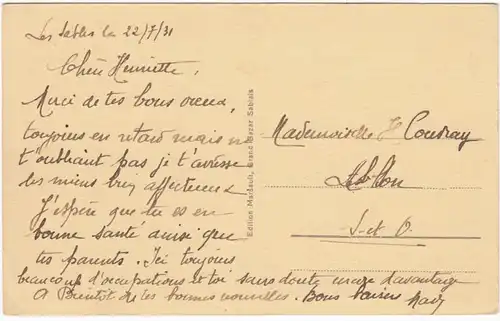 Les Sables le 22/7/31
Chère Henriette,
Merci de tes bons vœux,
toujours en retard mais ne
t'oubliant pas je t'adresse
les miens bien affectueux
J'espère que tu es en
bonne santé ainsi que
tes parents. Ici toujours
beaucoup d'occupations et toi sans doute encore davantage
A Bientôt de tes bonnes nouvelles. Bons baisers
Edition Mardault, Grand Bazar Sablais
Mademoiselle H Coudray
Ablon
S-et O.